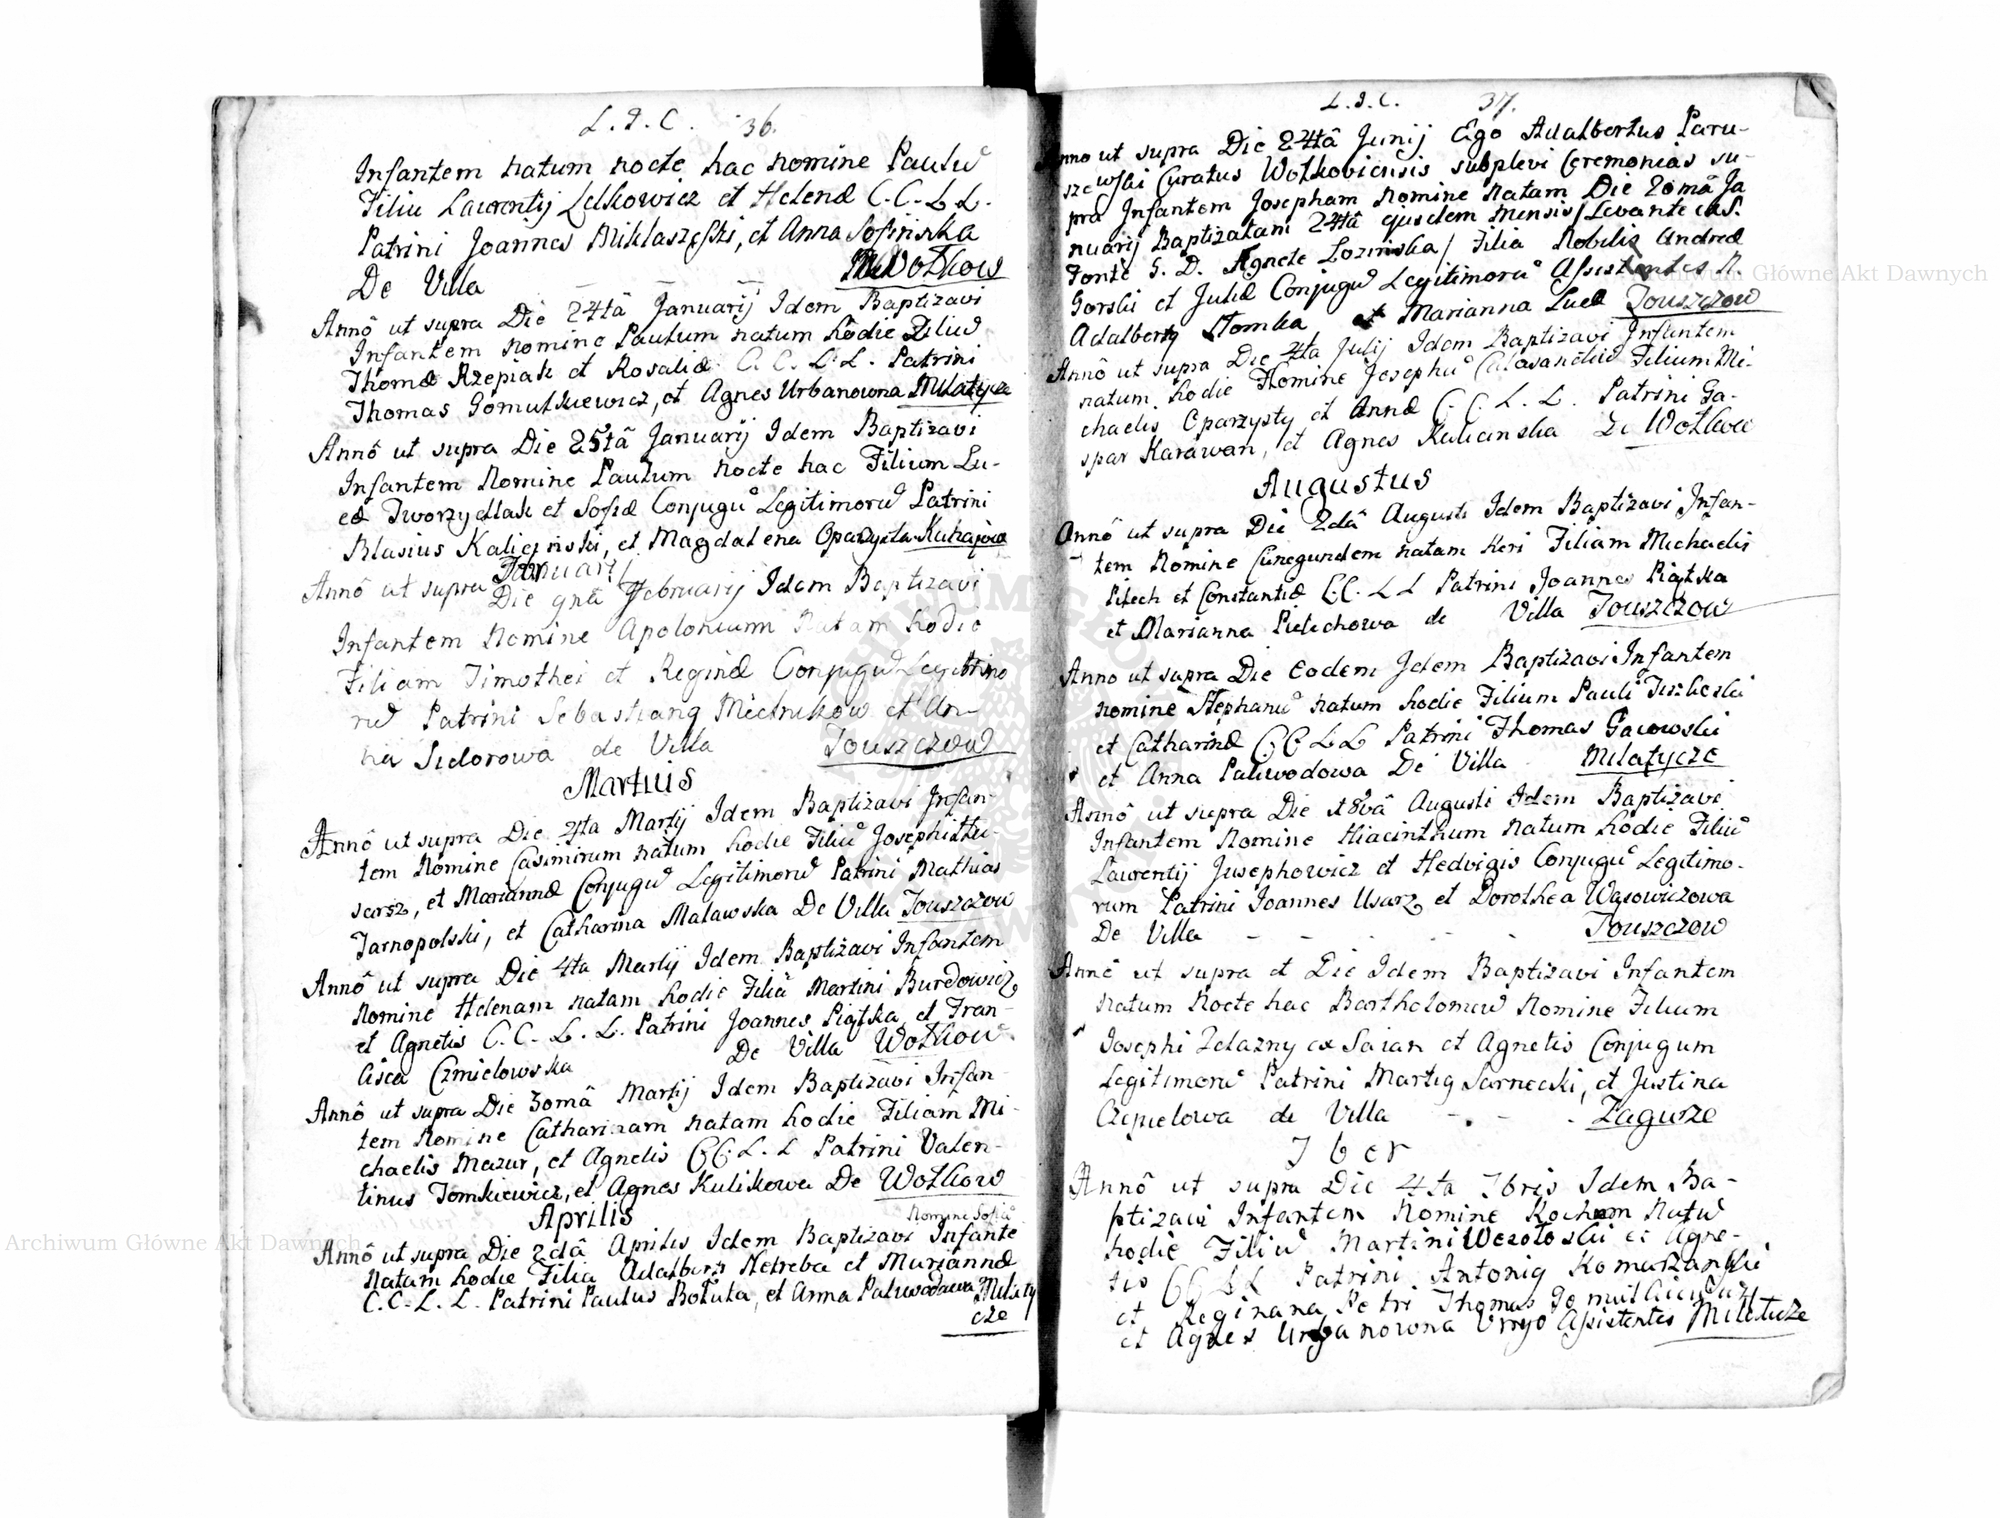 L. J. C. 36.
Infantem natum nocte hac nomine Paulū
Filiū Laurentij Lelkowicz et Helenæ C. C. L L.
Patrini Joannes Miklaszeski, et Anna Sofińska
De Villa Wołkow
Annô ut supra Die 24tâ Januarij Idem Baptizavi
Infantem nomine Paulum natum hodie Filiū
Thomæ Rzepiak et Rosaliæ C. C. L. L. Patrini
Thomas Gomułkiewicz, et Agnes Urbanowna Milatycze
Annô ut supra Die 25tâ Januarij Idem Baptizavi
Infantem Nomine Paulum nocte hac Filium Lu-
cæ Tworzydłak et Sofiæ Conjugū Legitimorū Patrini
Blasius Kaliciński, et Magdalena Oparzysta Kuhajow
Februarij
Annô ut supra Die 9nâ Februarij Idem Baptizavi
Infantem Nomine Apolonium Natam hodie
Filiam Timothei et Reginæ Conjugū Legitimo
rū Patrini Sebastianq Mielnikow et An-
na Sidorowa de Villa Touszczow
Martius
Annô ut supra Die 4ta Martij Idem Baptizavi Infan-
tem Nomine Casimirum natum hodie Filiū Josephi Hu-
sarsz, et Mariannæ Conjugū Legitimorū Patrini Mathias
Tarnopolski, et Catharina Malawska De Villa Touszczow
Annô ut supra Die 4ta Martij Idem Baptizavi Infantem
Nomine Helenam natam hodie Filiā Martini Burdowicz
et Agnetis C. C. L. L. Patrini Joannes Piątka et Fran-
cisca Czmielowska De Villa Wołkow
Annô ut supra Die 30mâ Martij Idem Baptizavi Infan-
tem Nomine Catharinam natam hodie Filiam Mi-
chaelis Mazur, et Agnetis C. C. L. L Patrini Valen-
tinus Tomkiewicz, et Agnes Kulikowa De Wołkow
Aprilis
Nomine Sofiā
Annô ut supra Die 2dâ Aprilis Idem Baptizavi Infante
Natam hodie Filia Adalberti Netreba et Mariannæ
C. C. L. L. Patrini Paulus Bołuta, et Anna Paliwodowa Milaty
cze
L. J. C. 37.
Anno ut supra Die 24tâ Junij Ego Adalbertus Paru-
szewski Curatus Wołkoviensis suplevi Ceremonias su-
pra Infantem Josepham nomine natam Die 20mâ Ja
nuarij Baptizatam 24tâ ejusdem mensis / Levante e S.
Fonte G. D. Agnete Lozińska / Filia Nobiliq Andreæ
Gorski et Juliæ Conjugū Legitimorū Assistentes
Adalbertq Słomka et Marianna Touszczow
Annô ut supra Die 4ta Julij Idem Baptizavi Infantem
natum hodie Nomine Josephū Calasanctiū Filium Mi-
chaelis Oparzysty et Annæ C. C. L. L. Patrini Ga-
spar Karawan, et Agnes Kulicinska Ze Wołkow
Augustus
Annô ut supra Die 2dâ Augusti Idem Baptizavi Infan-
tem Nomine Cunegundem natam heri Filiam Michaelis
Pilech et Constantiæ C. C. L L Patrini Joannes Piątka
et Marianna Pielichowa de Villa Touszczow
Anno ut supra Die Eodem Idem Baptizavi Infantem
nomine Stephanū natum hodie Filium Pauli
et Catharinæ C C L L Patrini Thomas Gacowski
et Anna Paliwodowa De Villa Milatycze
Annô ut supra Die 18vâ Augusti Idem Baptizavi
Infantem Nomine Hiacinthum natum hodie Filiū
Laurentij Jusephowicz et Hedvigis Conjugū Legitimo-
rum Patrini Joannes Usarz et Dorothea Wąsowiczowa
De Villa Touszczow
Annô ut supra et Die Idem Baptizavi Infantem
natum Nocte hac Bartholomeū Nomine Filium
Josephi Zelazny ex Saian et Agnetis Conjugum
Legitimorū Patrini Martiq Sarnecki, et Justina
Czepielowa de Villa Zagurze
7ber
Annô ut supra Die 4ta 7bris Idem Ba-
ptizavi Infantem Nomine Rochum Natū
hodie Filiū Martini Wesołoski et Agne-
tis C C L L Patrini Antoniq Komarzański
et Reginana Petri Thomas Gomułkiewicz
et Agnes Urbanowna Virgo Assistentes Milatucze
Archiwum Główne Akt Dawnych
Archiwum Główne Akt Dawnych